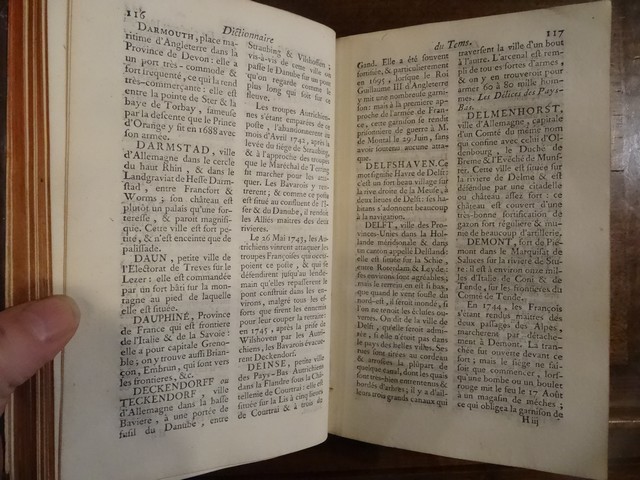 116
Dictionnaire
DARMOUTH, place ma-
ritime d'Angleterre dans la
Province de Devon: elle a
un port très-commode &
fort frequenté, ce qui la rend
très-commerçante: elle est
entre la pointe de Ster & la
baye de Torbay, fameuse
par la descente que le Prince
d'Orange y fit en 1688 avec
son armée.
DARMSTAD, ville
d'Allemagne dans le cercle
du haut Rhin, & dans le
Landgraviat de Hesse Darm-
stad, entre Francfort &
Worms; son château est
plutôt un palais qu'une for-
teresse, & paroît magnifi-
que. Cette ville est fort pe-
tite, & n'est enceinte que de
palissade.
DAUN, petite ville de
l'Electorat de Treves sur le
Lezer: elle est commandée
par un fort bâti sur la mon-
tagne au pied de laquelle
elle est située.
DAUPHINÉ, Province
de France qui est frontiere
de l'Italie & de la Savoie:
elle a pour capitale Greno-
ble; on y trouve aussi Brian-
çon, Embrun, qui sont vers
les frontieres, &c.
DECKENDORFF ou
TECKENDORF, ville
d'Allemagne dans la basse
Baviere, à une portée de
fusil du Danube, entre
Straubing & Wilshoffen;
vis-à-vis de cette ville on
passe le Danube sur un pont
qu'on regarde comme le
plus long qui soit sur ce
fleuve.
Les troupes Autrichien-
nes s'étant emparées de ce
poste, l'abandonnerent au
mois d'Avril 1742, après la
levée du siége de Straubing,
& à l'approche des troupes
que le Maréchal de Terring
fit marcher pour les atta-
quer. Les Bavarois y ren-
trerent; & comme ce poste
est situé au confluent de l'I-
ser & du Danube, il rendoit
les Alliés maîtres des deux
rivieres.
Le 26 Mai 1743, les Au-
trichiens vinrent attaquer les
troupes Françoises qui occu-
poient ce poste, & qui se
défendirent jusqu'au lende-
main qu'elles repasserent le
pont construit dans les en-
virons, malgré tous les ef-
forts que firent les ennemis
pour leur couper la retraite:
en 1745, après la prise de
Wilshoven par les Autri-
chiens, les Bavarois évacue-
rent Deckendorf.
DEINSE, petite ville
des Pays-Bas Autrichiens
dans la Flandre sous la Châ-
tellenie de Courtrai: elle est
située sur la Lis à cinq lieues
de Courtrai & à trois de
du Tems.
117
Gand. Elle a été souvent
fortifiée, & particulierement
en 1695, lorsque le Roi
Guillaume III d'Angleterre
y mit une nombreuse garni-
son: mais à la premiere ap-
proche de l'armée de Fran-
ce, cette garnison se rendit
prisonniere de guerre à M.
de Montal le 29 Juin, sans
avoir soutenu aucune atta-
que.
DELFSHAVEN. Ce
mot signifie Havre de Delft:
c'est un fort beau village sur
la rive droite de la Meuse, à
deux lieues de Delft: ses ha-
bitans s'adonnent beaucoup
à la navigation.
DELFT, ville des Pro-
vinces-Unies dans la Hol-
lande méridionale & dans
un canton appellé Delftland:
elle est située sur la Schie,
entre Roterdam & Leyde:
ses environs sont agréables;
mais le terrein en est si bas,
que quand le vent souffle du
nord-est, il seroit inondé, si
l'on ne tenoit les écluses ou-
vertes. On dit de la ville de
Delft, qu'elle seroit admi-
rée, si elle n'étoit pas dans
le pays des belles villes. Ses
rues sont tirées au cordeau
& arrosées la plûpart de
quelque canal, dont les quais
sont très-bien entretenus &
bordés d'arbres; il y a d'ail-
leurs trois grands canaux qui
traversent la ville d'un bout
à l'autre. L'arcenal est rem-
pli de toutes sortes d'armes,
& on y en trouveroit pour
armer 60 à 80 mille hom-
mes. Les Délices des Pays-
Bas.
DELMENHORST,
ville d'Allemagne, capitale
d'un Comté du même nom
qui confine avec celui d'Ol-
denbourg, le Duché de
Breme & l'Evêché de Muns-
ter. Cette ville est située sur
la riviere de Delme & est
défendue par une citadelle
ou château assez fort: ce
château est couvert d'une
très-bonne fortification de
gazon fort réguliere & mu-
nie de beaucoup d'artillerie.
DEMONT, fort de Pié-
mont dans le Marquisat de
Saluces sur la riviere de Stu-
re: il est à environ onze mil-
les d'Italie de Coni & de
Tende, sur les frontieres du
Comté de Tende.
En 1744, les François
s'étant rendus maîtres des
deux passages des Alpes,
marcherent par détache-
ment à Demont. La tran-
chée fut ouverte devant ce
fort; mais le siége ne fai-
soit que commencer, lors-
qu'une bombe ou un boulet
rouge mit le feu le 17 Août
à un magasin de mêches;
ce qui obligea la garnison de
H iij